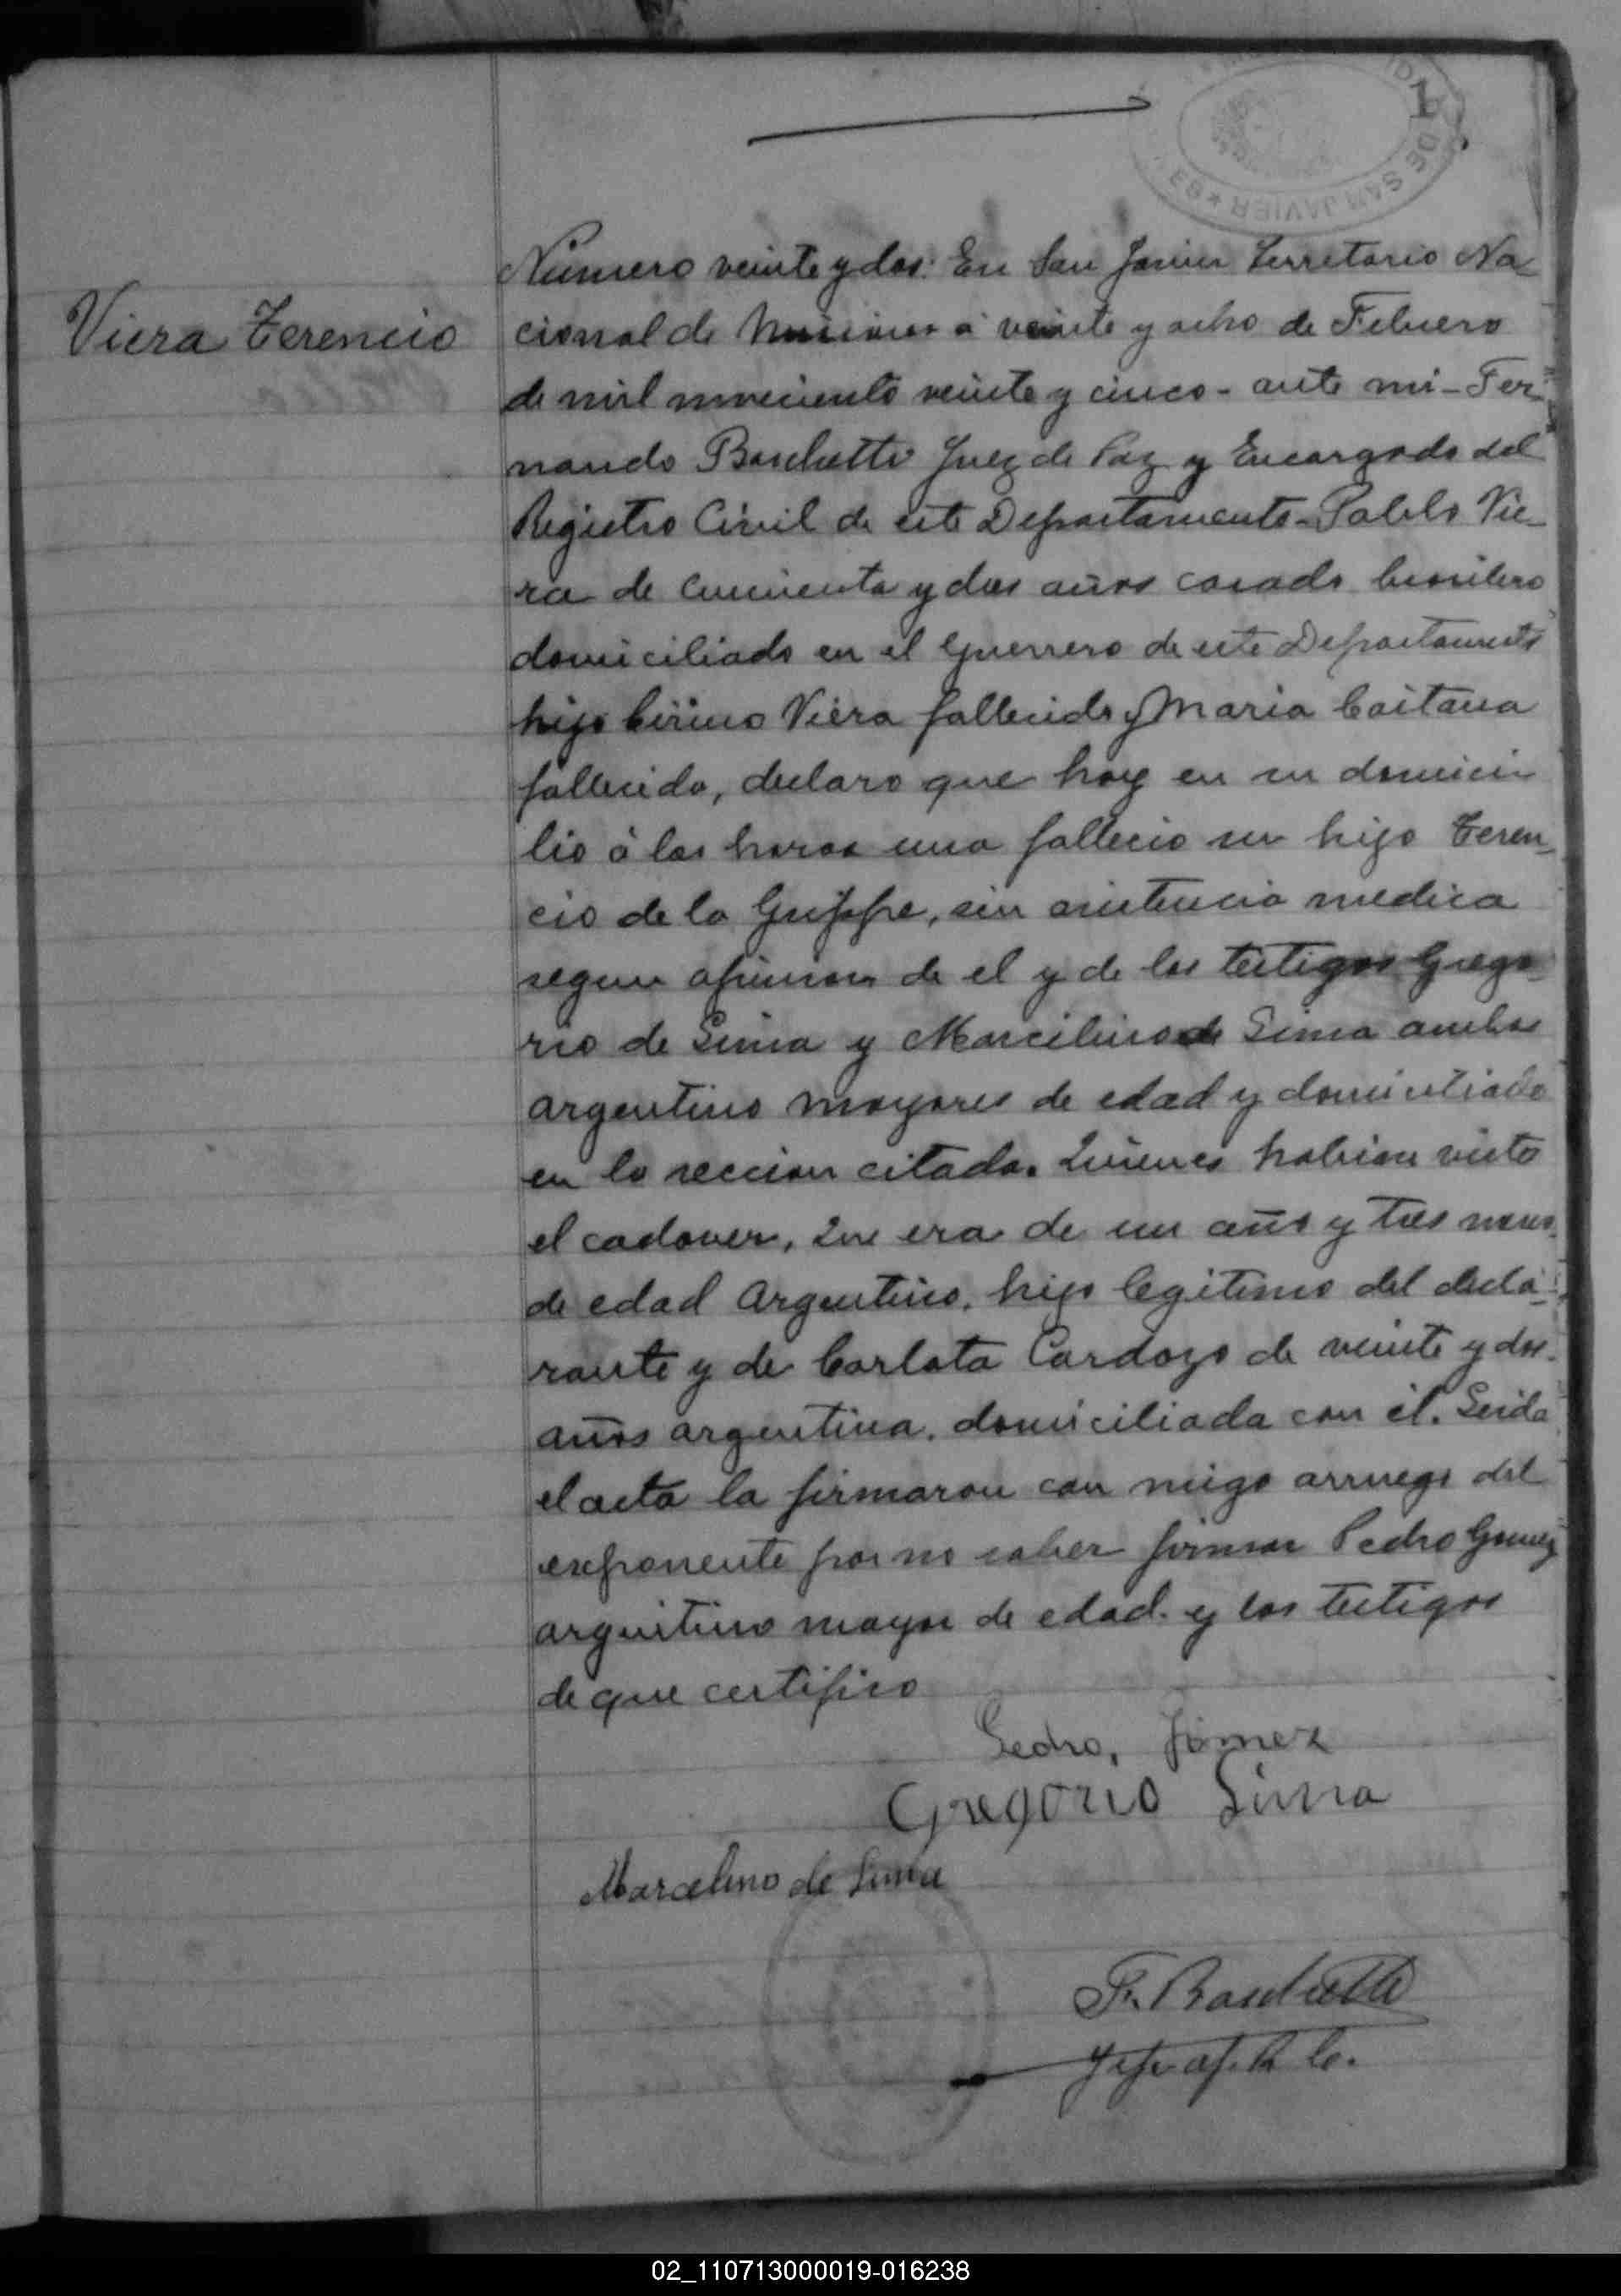 1
DE SAN JAVIER
Viera Terencio
Número veinte y dos. En San Javier Territorio Na_
cional de Misiones á veinte y ocho de Febrero
de mil noveciento veinte y cinco - ante mi - Fer_
nando Boschetti Juez de Paz y Encargado del
Registro Civil de este Departamento - Pablo Vie_
ra de cincuenta y dos años casado brasilero
domiciliado en el Guerrero de este Departamento
hijo Cirino Viera fallecido y Maria Caitana
fallecida, declaro que hoy en su domici
lio á las horas una fallecio su hijo Teren_
cio de la Grippe, sin asistencia medica
segun opinion de el y de los testigos Grego_
rio de Lima y Marcilino de Lima ambos
argentino mayores de edad y domiciliado
en la seccion citada. Quienes habian visto
el cadaver, Que era de un año y tres meses
de edad Argentino, hijo legitimo del decla_
rante y de Carlota Cardozo de veinte y dos
años argentina, domiciliada con él. Leida
el acta la firmaron con migo arruego del
exponente por no saber firmar Pedro Gomez
argentino mayor de edad y los testigos
de que certifico
Pedro, Gomez
Gregorio Lima
Marcelino de Lima
F. Boschetti
Jefe of. R. C.
02_110713000019-016238